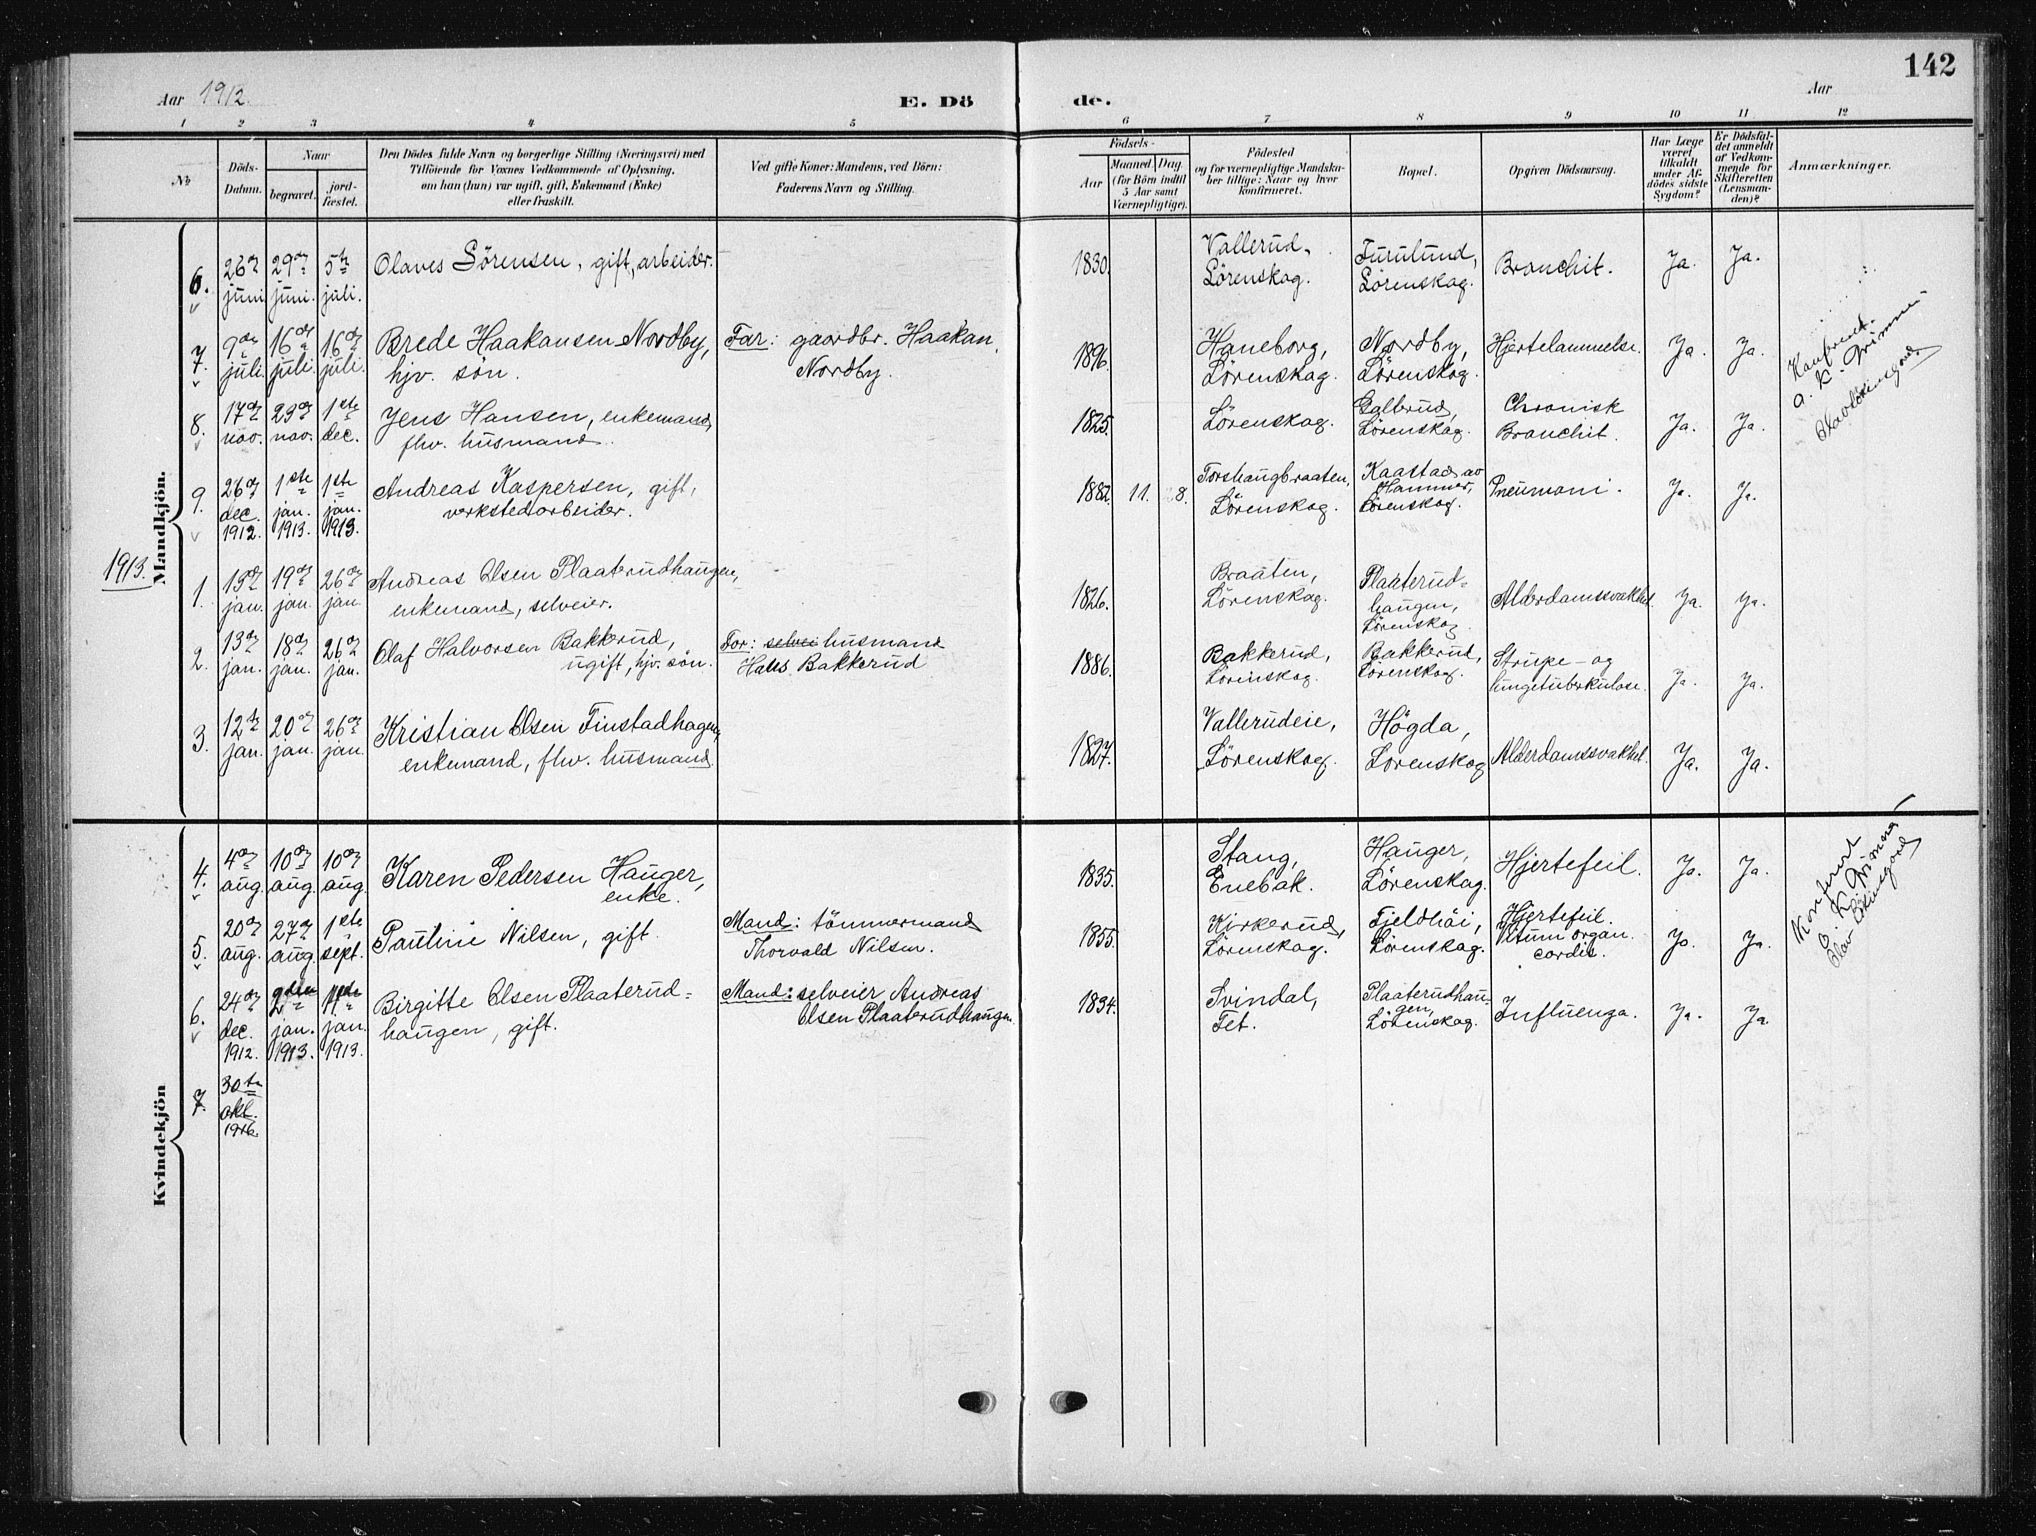 142
Aar 1912.
E. Dö
de.
Aar
1 2 3 4 5 6 7 8 9 10 11 12
No
Döds-
Datum.
Naar
begravet.
jord-
fæstet.
Den Dödes fulde Navn og borgerlige Stilling (Næringsvei) med
Tilföiende for Voxnes Vedkommende af Oplysning,
om han (hun) var ugift, gift, Enkemand (Enke)
eller fraskilt.
Ved gifte Koner: Mandens, ved Börn:
Faderens Navn og Stilling.
Födsels-
Aar
Maaned Dag
(for Börn indtil
5 Aar samt
Værnepligtige).
Födested
og for værnepligtige Mandska-
ber tillige: Naar og hvor
konfirmeret.
Bopæl.
Opgiven Dödsaarsag.
Har Læge
været
tilkaldt
under Af-
dödes sidste
Sygdom?
Er Dödsfal-
det anmeldt
af Vedkom-
mende for
Skifteretten
(Lensman-
den)?
Anmærkninger.
Mandkjön.
6. 26de juni 29de juni. 5te juli. Olaves Sörensen, gift, arbeider. 1830. Vallerud, Lörenskog. Furulund, Lörenskog. Bronchit. Ja. Ja.
7. 9de juli. 16de juli 16de juli. Brede Haakansen Nordby, hjv. sön. Far: gaardbr. Haakan Nordby. 1896. Haneborg, Lörenskag. Nordby, Lörenskog. Hjertelammelse. Ja. Ja.
8. 17de nov. 29de nov. 1ste dec. Jens Hansen, enkemand, fhv. husmand. 1825. Lörenskag. Lörenskag. Chronisk Bronchit. Ja. Ja.
9. 26de dec. 1912. 1ste jan. 1913. 1ste jan. 1913. Andreas Kaspersen, gift, verkstedarbeider. 1882. 11. 28. Torshaugbraaten, Lörenskog. Kaastad av Hammer, Lörenskog. Pneumoni. Ja. Ja.
1913.
1. 13de jan. 19de jan. 26de jan. Andreas Olsen Plaaterudhaugen, enkemand, selveier. 1826. Braaten, Lörenskag. Plaaterud- haugen, Lörenskog Alderdamssvakhet. Ja. Ja.
2. 13de jan. 18de jan. 26de jan. Olaf Halvorsen Bakkerud, ugift, hjv. sön. Far: selvei husmand Hans Bakkerud 1886. Bakkerud, Lörenskog. Bakkerud, Lörenskog. Strupe- og lungetuberkulose. Ja. Ja.
3. 12te jan. 20de jan. 26de jan. Kristian Olsen Finstadhagen, enkemand, fhv. husmand. 1827. Vallerudeie, Lörenskog. Högda, Lörenskog Alderdamssvakhet. Ja. Ja.
Kvindekjön
4. 4de aug. 10de aug. 10de aug. Karen Pedersen Hauger, enke. 1835. Stang, Enebak. Hauger, Lörenskag. Hjertefeil. Ja. Ja.
5. 20de aug. 27de aug. 1ste sept. Pauline Nilsen, gift. Mand: tömmermand Thorvald Nilsen. 1855. Kirkerud, Lörenskag. Fjeldhöi, Lörenskag. Hjertefeil. Vitium organ. cordis. Ja. Ja.
6. 24de dec. 1912. jan. 1913. jan. 1913. Birgitte Olsen Plaaterud- haugen, gift. Mand: selveier Andreas Olsen Plaaterudhaugen. 1834. Svindal, Fet. Plaaterudhau- gen, Lörenskag. Influenza. Ja. Ja.
7. 30te okt. 1916.